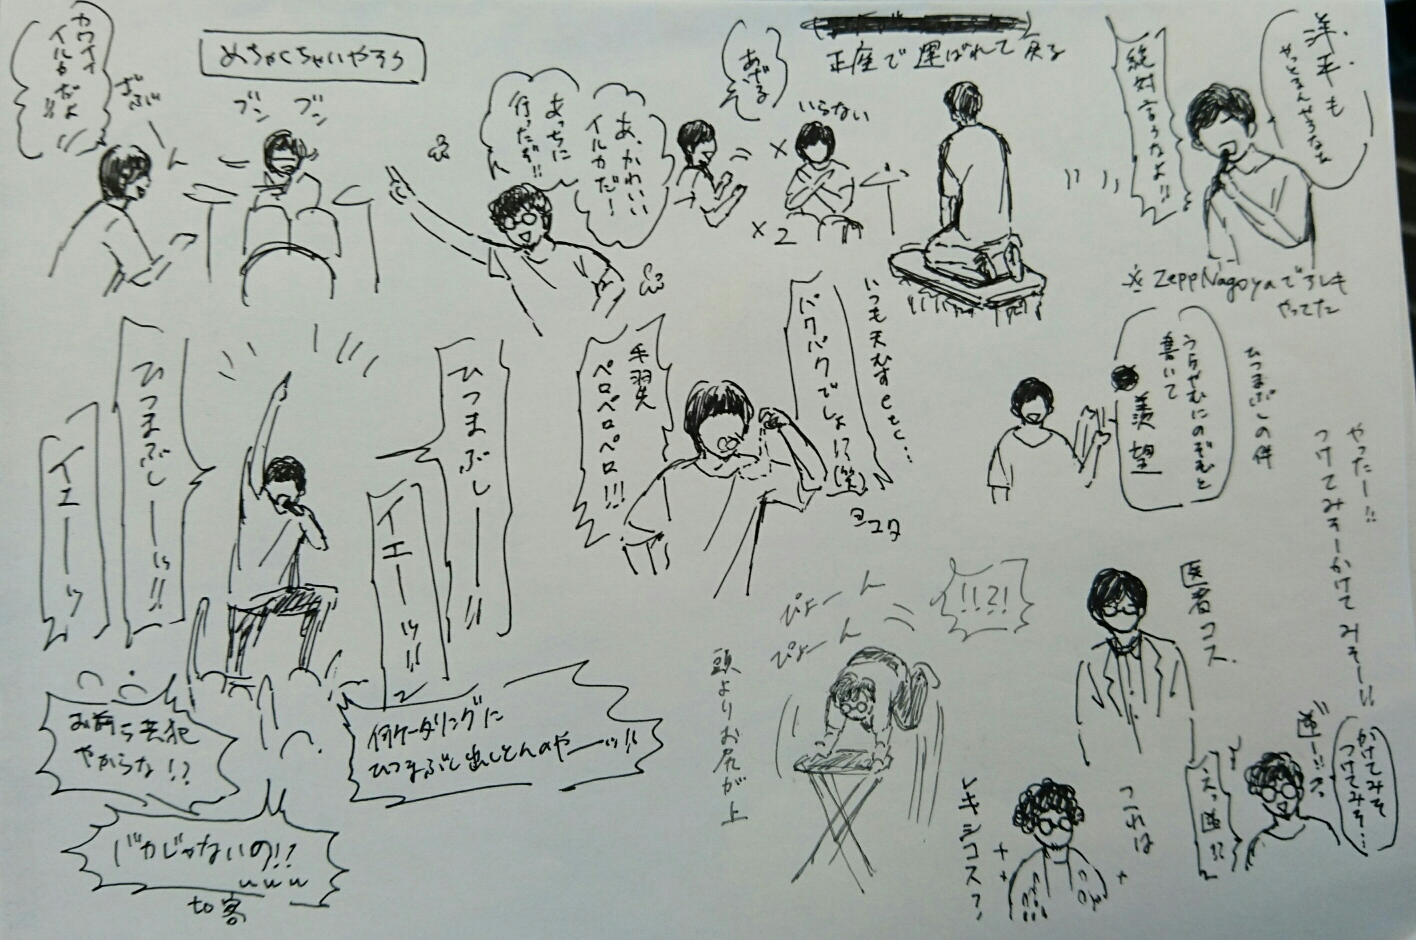 カワイイ
イルカだよ
!!
ざぶ
ん
めちゃくちゃいやそう
ブン ブン
あ、かわいい
イルカだ!
あっちに
行ったぞ!!
あげる
いらない
×2
正座で運ばれて戻る
洋平も
やっとるんやろなぁ
絶対言うなよ!!
※Zepp Nagoyaで
やってた
ひつまぶしーッ!!
イエーッ
ひつまぶしーッ!!
イエーッ!!
手羽先
ペロペロペロ!!!
いつも天むすとど…
パクパクでしょ!?(笑)
ヨコタ
ひつまぶしの件
うらやむにのぞむと
書いて
羨望
やったー!!
つけてみそーかけてみそー!!
医者コス
かけてみそ
つけてみそ…
逆ー!!
えっ逆!?
これは
レキシコス?
!!?!
ぴょーん
ぴょーん
頭よりお尻が上
お前ら共犯
やからな!?
何ケータリングに
ひつまぶし出しとんのやーッ!!
バカじゃないの!?
www
to客